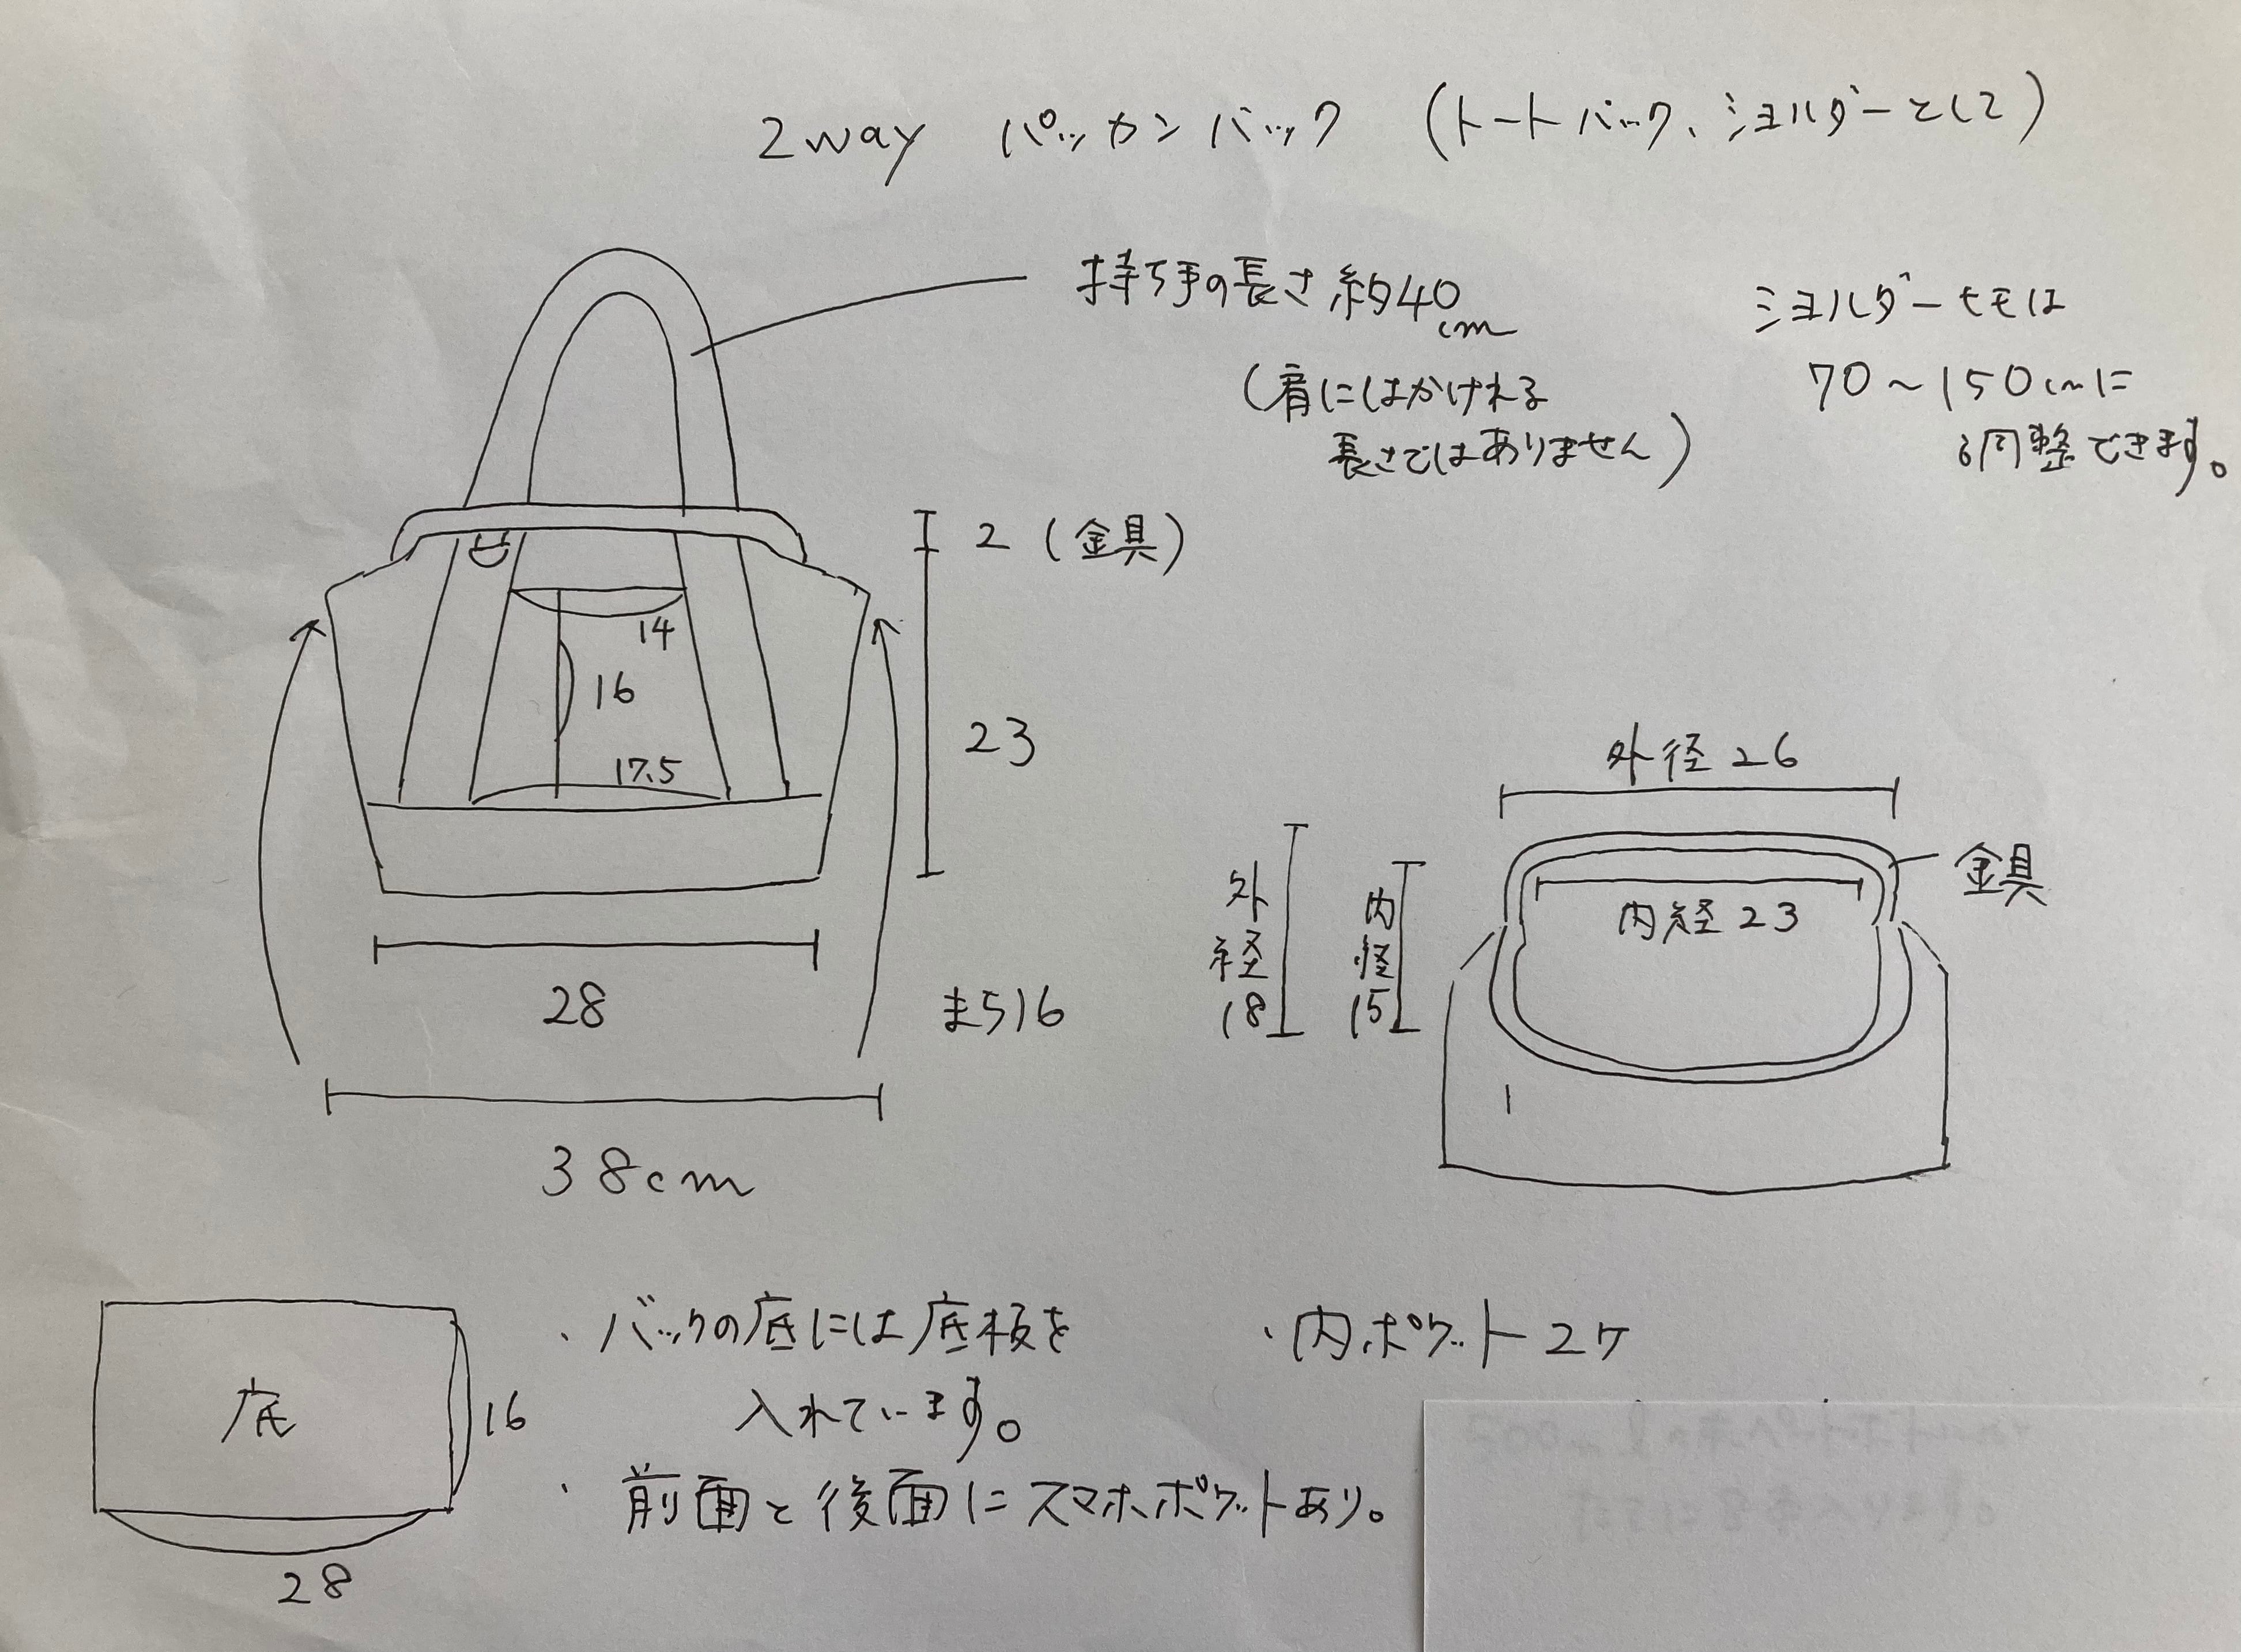 2way パッカンバック (トートバック、ショルダーとして)
持ち手の長さ 約40cm
(肩にはかけれる
長さではありません)
ショルダーヒモは
70～150cmに
調整できます。
2 (金具)
14
16
17.5
23
28
まち16
38cm
外径 26
金具
内径 23
外径18
内径15
底
16
28
・バックの底には底板を
入れています。
・前面と後面にスマホポケットあり。
・内ポケット2ケ